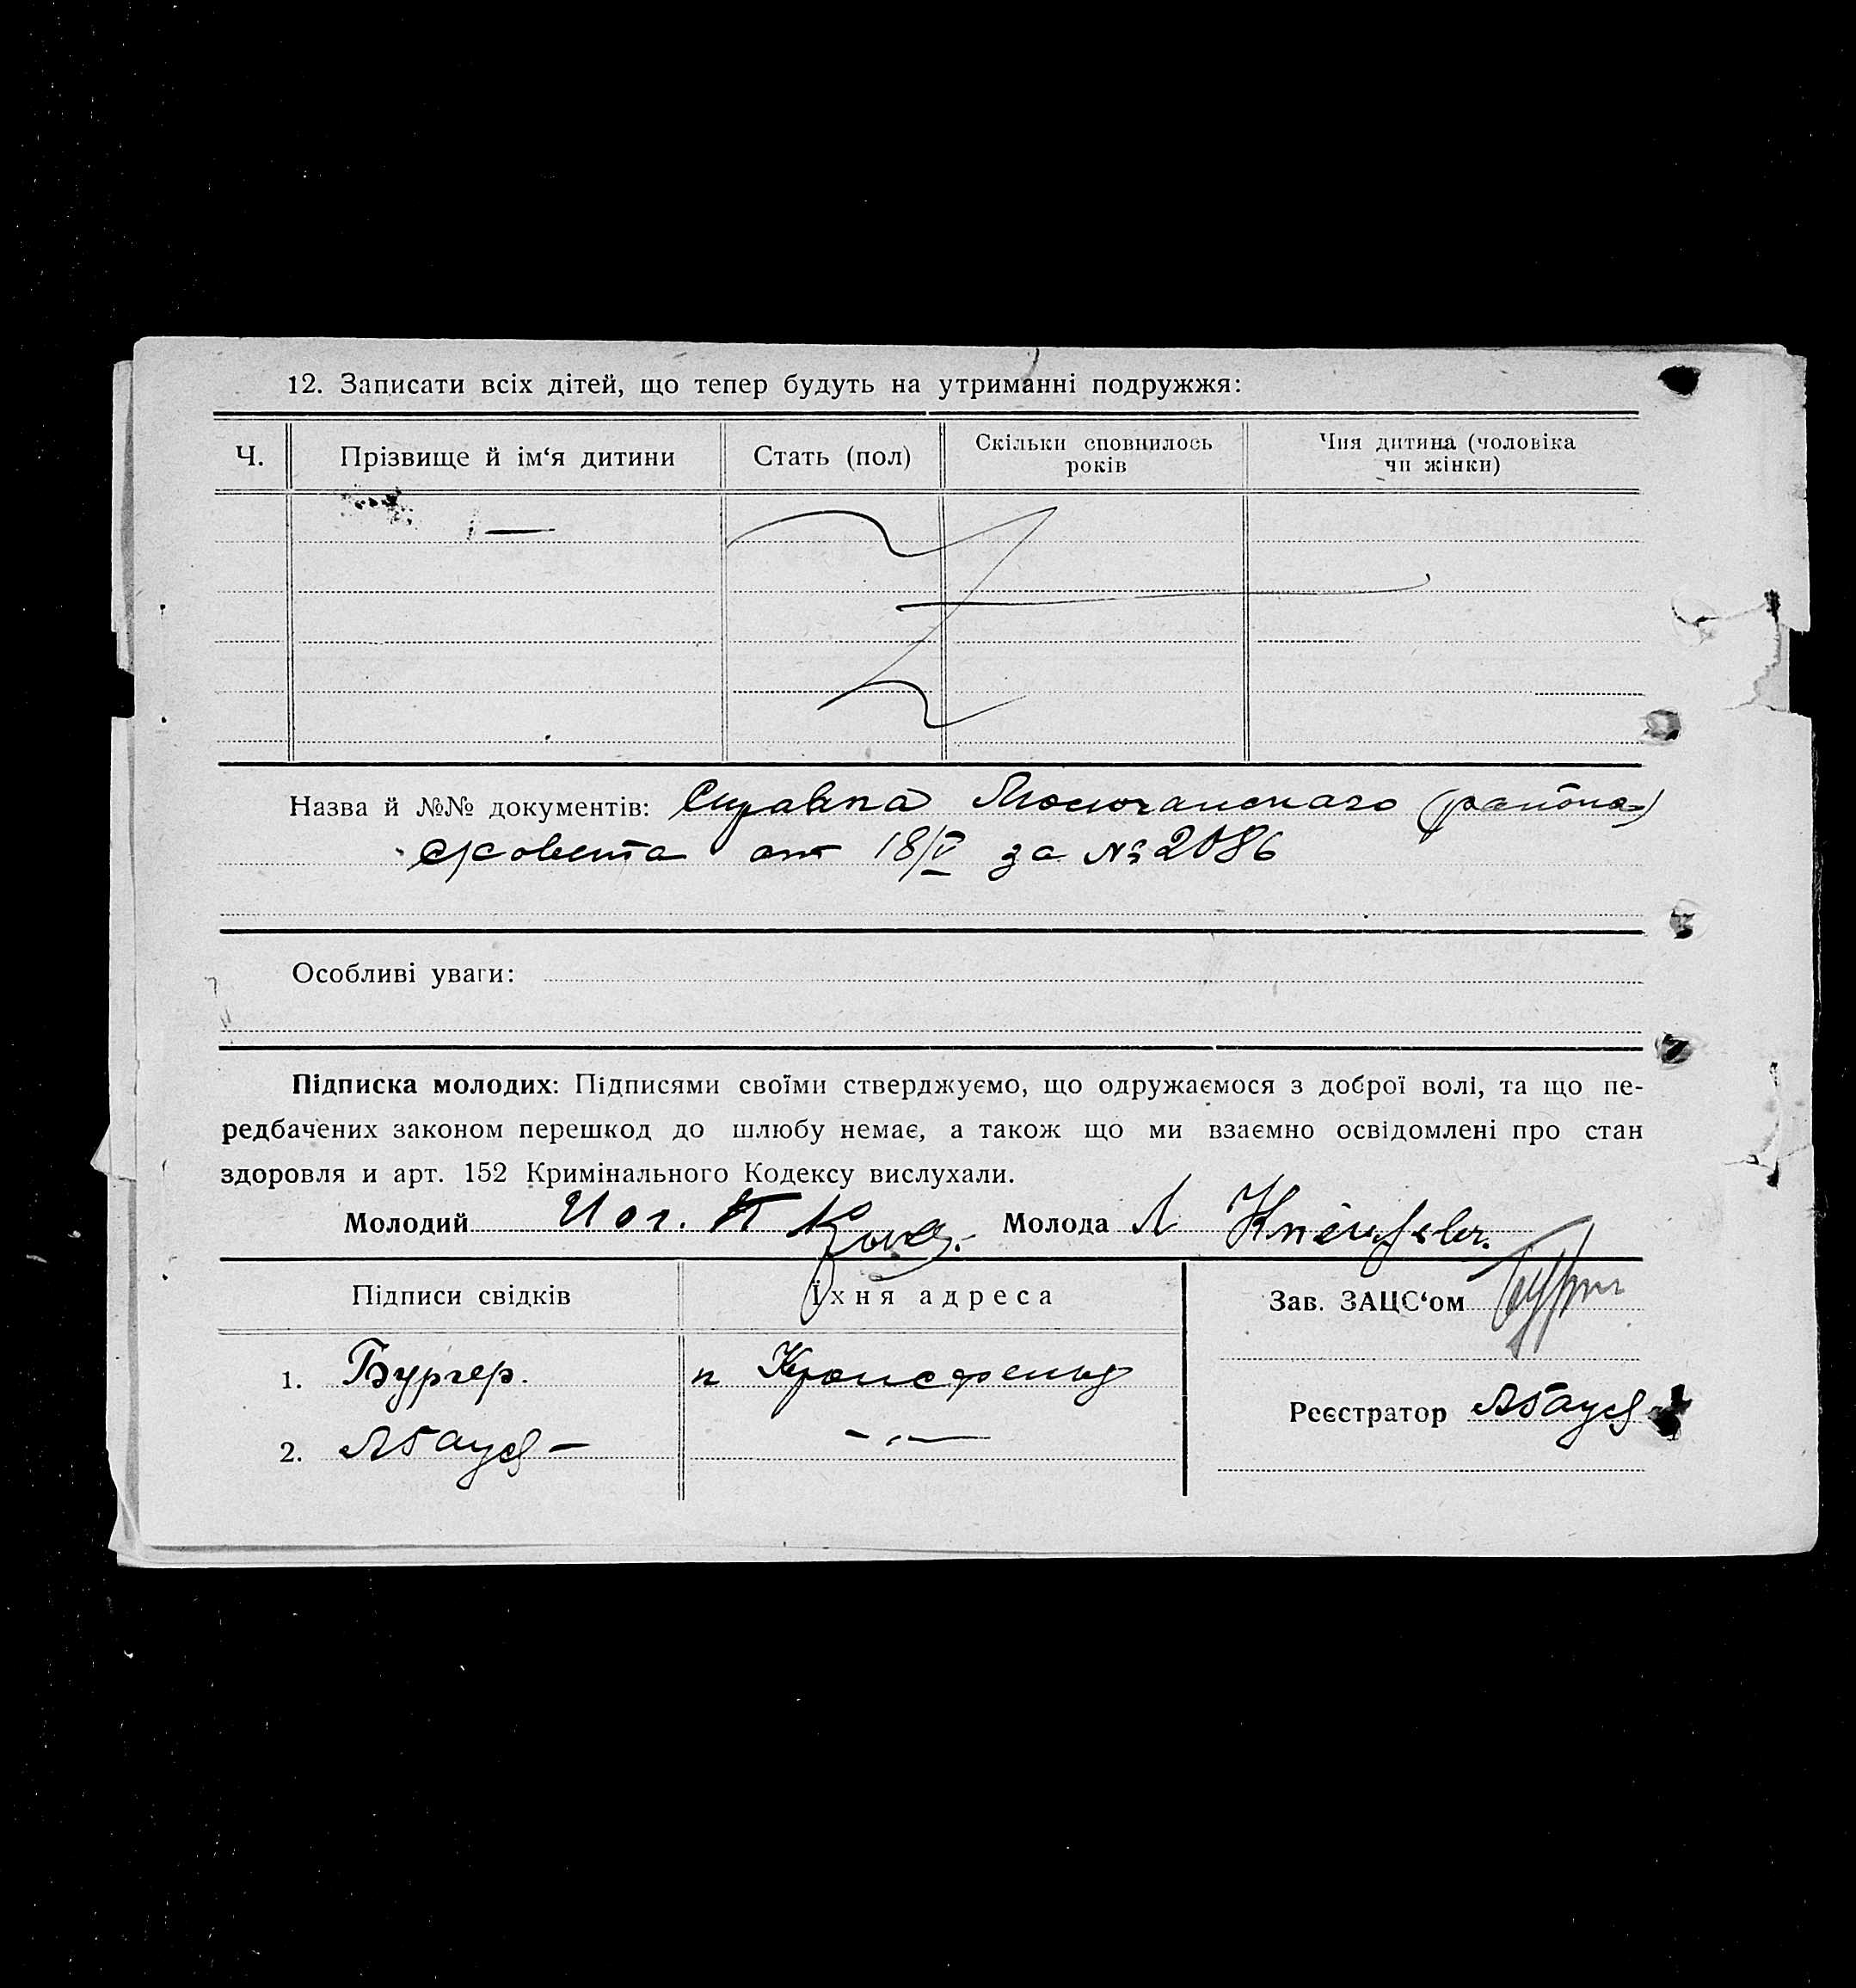 12. Записати всіх дітей, що тепер будуть на утриманні подружжя:
Ч.
Прізвище й ім‘я дитини
Стать (пол)
Скільки сповнилось
років
Чия дитина (чоловіка
чи жінки)
—
Назва й №№ документів: Справка (района)
от 18/V за №2086
Особливі уваги:
Підписка молодих: Підписями своїми стверджуємо, що одружаємося з доброї волі, та що пе-
редбачених законом перешкод до шлюбу немає, а також що ми взаємно освідомлені про стан
здоровля и арт. 152 Кримінального Кодексу вислухали.
Молодий
Молода
Підписи свідків
Їхня адреса
Зав. ЗАЦС‘ом
1. Бургер. Кронсфельд
2. — „ —
Реєстратор